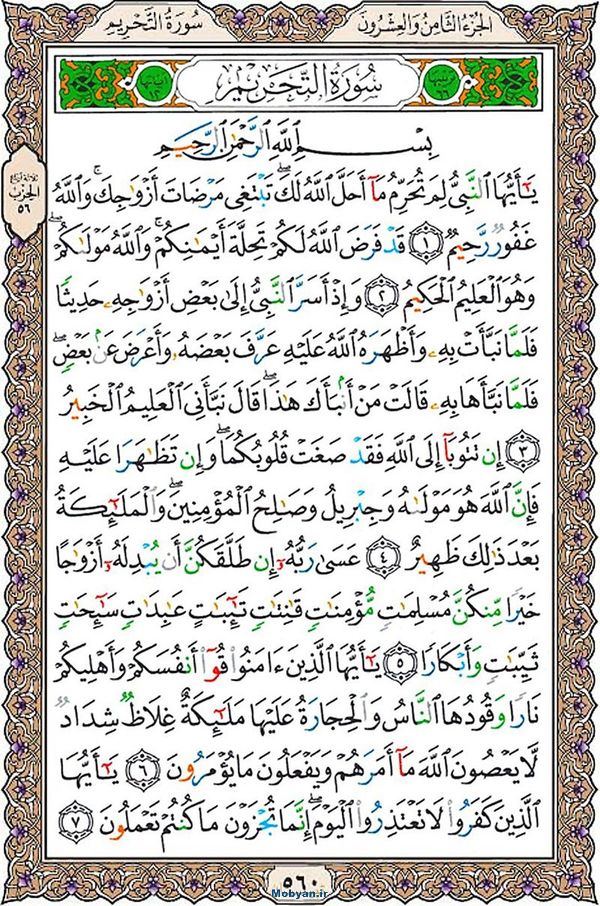 الجزء الثامن والعشرون
سورة التحريم
سُورَةُ التَّحْرِيمِ
بِسْمِ ٱللَّهِ ٱلرَّحْمَٰنِ ٱلرَّحِيمِ
يَٰٓأَيُّهَا ٱلنَّبِىُّ لِمَ تُحَرِّمُ مَآ أَحَلَّ ٱللَّهُ لَكَ ۖ تَبْتَغِى مَرْضَاتَ أَزْوَٰجِكَ ۚ وَٱللَّهُ
الحزب
٥٦
غَفُورٌ رَّحِيمٌ ١ قَدْ فَرَضَ ٱللَّهُ لَكُمْ تَحِلَّةَ أَيْمَٰنِكُمْ ۚ وَٱللَّهُ مَوْلَىٰكُمْ ۖ
وَهُوَ ٱلْعَلِيمُ ٱلْحَكِيمُ ٢ وَإِذْ أَسَرَّ ٱلنَّبِىُّ إِلَىٰ بَعْضِ أَزْوَٰجِهِۦ حَدِيثًا
فَلَمَّا نَبَّأَتْ بِهِۦ وَأَظْهَرَهُ ٱللَّهُ عَلَيْهِ عَرَّفَ بَعْضَهُۥ وَأَعْرَضَ عَنۢ بَعْضٍ ۖ
فَلَمَّا نَبَّأَهَا بِهِۦ قَالَتْ مَنْ أَنۢبَأَكَ هَٰذَا ۖ قَالَ نَبَّأَنِىَ ٱلْعَلِيمُ ٱلْخَبِيرُ
٣ إِن تَتُوبَآ إِلَى ٱللَّهِ فَقَدْ صَغَتْ قُلُوبُكُمَا ۖ وَإِن تَظَٰهَرَا عَلَيْهِ
فَإِنَّ ٱللَّهَ هُوَ مَوْلَىٰهُ وَجِبْرِيلُ وَصَٰلِحُ ٱلْمُؤْمِنِينَ ۖ وَٱلْمَلَٰٓئِكَةُ
بَعْدَ ذَٰلِكَ ظَهِيرٌ ٤ عَسَىٰ رَبُّهُۥٓ إِن طَلَّقَكُنَّ أَن يُبْدِلَهُۥٓ أَزْوَٰجًا
خَيْرًا مِّنكُنَّ مُسْلِمَٰتٍ مُّؤْمِنَٰتٍ قَٰنِتَٰتٍ تَٰٓئِبَٰتٍ عَٰبِدَٰتٍ سَٰٓئِحَٰتٍ
ثَيِّبَٰتٍ وَأَبْكَارًا ٥ يَٰٓأَيُّهَا ٱلَّذِينَ ءَامَنُوا۟ قُوٓا۟ أَنفُسَكُمْ وَأَهْلِيكُمْ
نَارًا وَقُودُهَا ٱلنَّاسُ وَٱلْحِجَارَةُ عَلَيْهَا مَلَٰٓئِكَةٌ غِلَاظٌ شِدَادٌ
لَّا يَعْصُونَ ٱللَّهَ مَآ أَمَرَهُمْ وَيَفْعَلُونَ مَا يُؤْمَرُونَ ٦ يَٰٓأَيُّهَا
ٱلَّذِينَ كَفَرُوا۟ لَا تَعْتَذِرُوا۟ ٱلْيَوْمَ ۖ إِنَّمَا تُجْزَوْنَ مَا كُنتُمْ تَعْمَلُونَ ٧
٥٦٠
Mobyan.ir